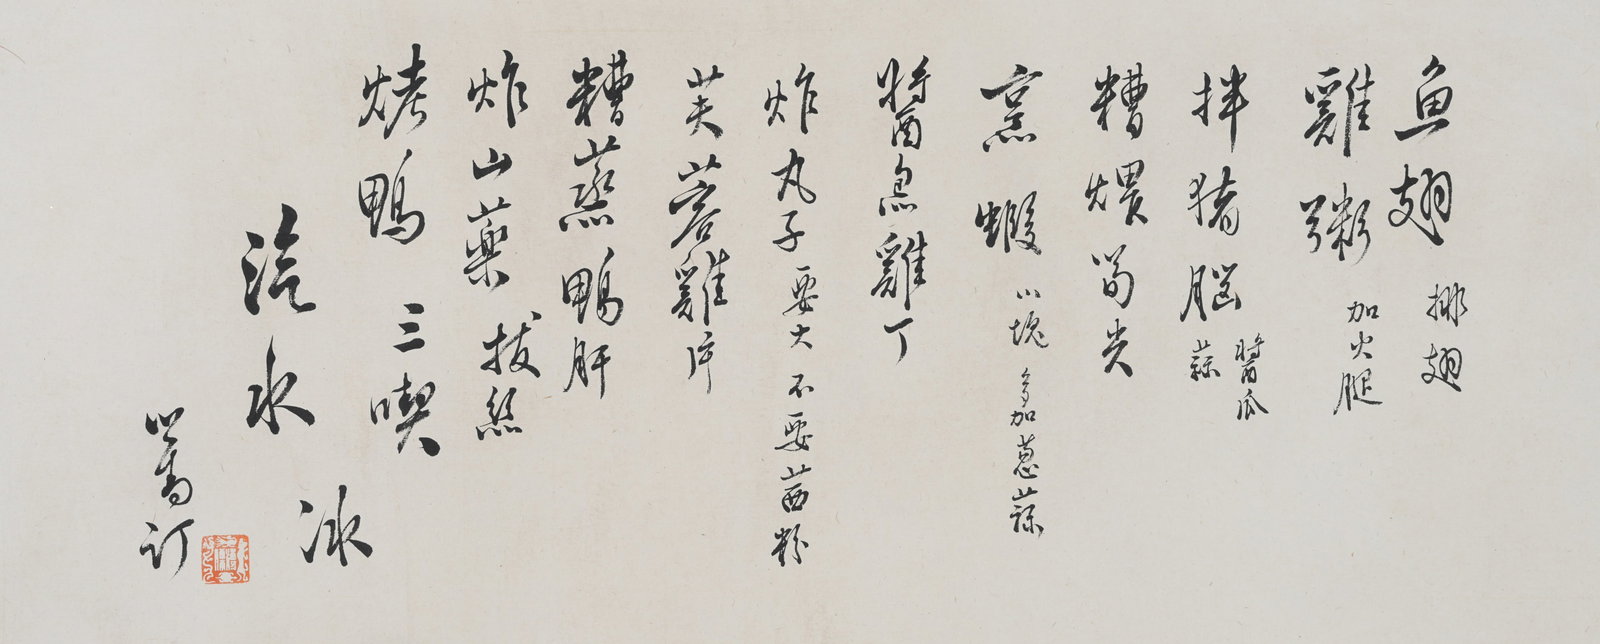 魚翅 排翅
雞粥 加火腿
拌豬腦 醬瓜 蒜
糟煨筍尖
烹蝦 小塊 多加蔥蒜
醬烏雞丁
炸丸子 要大 不要茜粉
芙蓉雞片
糟蒸鴨肝
炸山藥 拔絲
烤鴨 三喫
汽水 冰
心畬訂